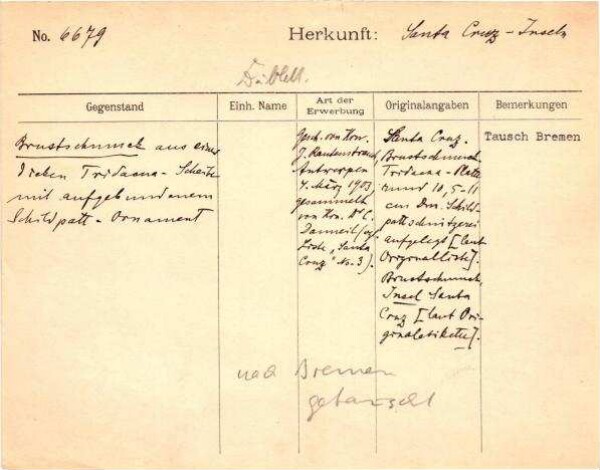 No. 6679 Herkunft: Santa Cruz-Inseln
Dublett.
Gegenstand Einh. Name Art der Erwerbung Originalangaben Bemerkungen
Brustschmuck aus einer
dicken Tridacna-Scheibe
mit aufgebundenem
Schildpatt-Ornament
Gesch. von Hrn.
J. Rautenstrauch,
Antwerpen
4. März 1903,
gesammelt
von Hrn. Dr. C.
Danneil (cf.
Liste, "Santa
Cruz" No. 3).
Santa Cruz.
Brustschmuck,
Tridacna-Platte
rund 10,5-11
cm Dm. Schild-
pattschnitzerei
aufgelegt [laut
Originalliste].
Brustschmuck,
Insel Santa
Cruz [laut Ori-
ginaletikette].
Tausch Bremen
nach Bremen
getauscht